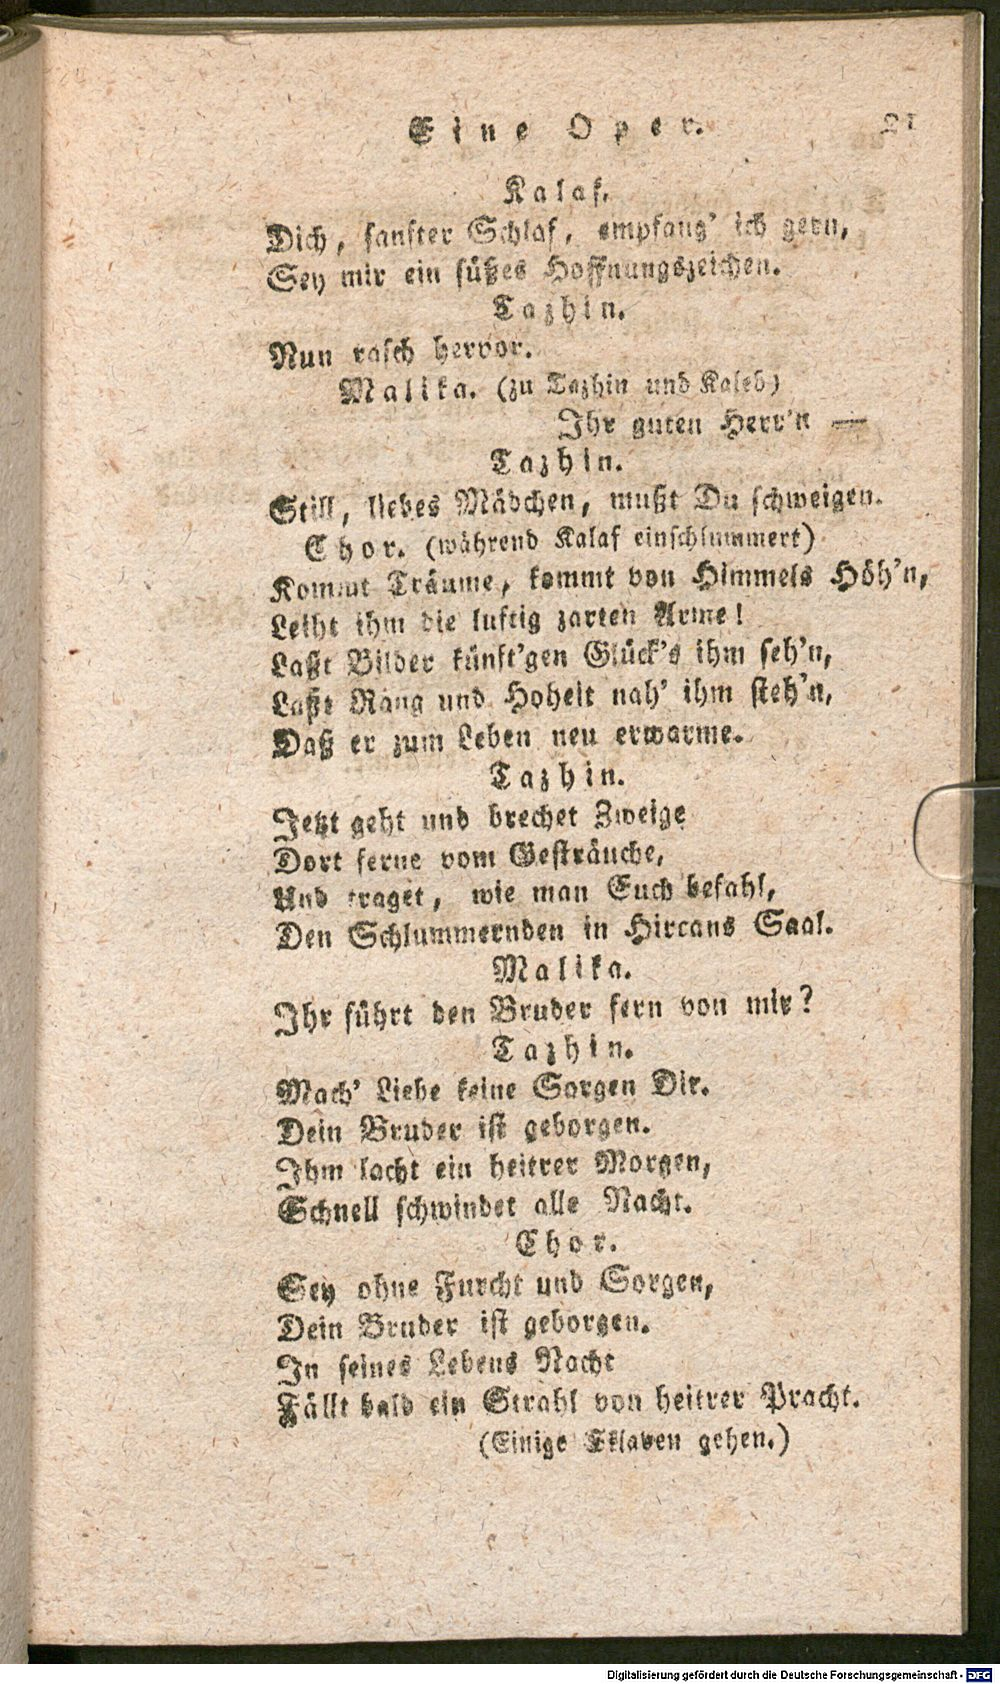 Eine Oper. 21
Kalaf.
Dich, sanfter Schlaf, empfang' ich gern,
Sey mir ein süßes Hoffnungszeichen.
Tazhin.
Nun rasch hervor.
Malika. (zu Tazhin und Kaleb)
Ihr guten Herr'n —
Tazhin.
Still, liebes Mädchen, mußt Du schweigen.
Chor. (während Kalaf einschlummert)
Kommt Träume, kommt von Himmels Höh'n,
Leiht ihm die luftig zarten Arme!
Laßt Bilder künft'gen Glück's ihm seh'n,
Laßt Rang und Hoheit nah' ihm steh'n,
Daß er zum Leben neu erwarme.
Tazhin.
Jetzt geht und brechet Zweige
Dort ferne vom Gesträuche,
Und traget, wie man Euch befahl,
Den Schlummernden in Hircans Saal.
Malika.
Ihr führt den Bruder fern von mir?
Tazhin.
Mach' Liebe keine Sorgen Dir.
Dein Bruder ist geborgen.
Ihm lacht ein heitrer Morgen,
Schnell schwindet alle Nacht.
Chor.
Sey ohne Furcht und Sorgen,
Dein Bruder ist geborgen.
In seines Lebens Nacht
Fällt bald ein Strahl von heitrer Pracht.
(Einige Sklaven gehen.)
Digitalisierung gefördert durch die Deutsche Forschungsgemeinschaft - DFG